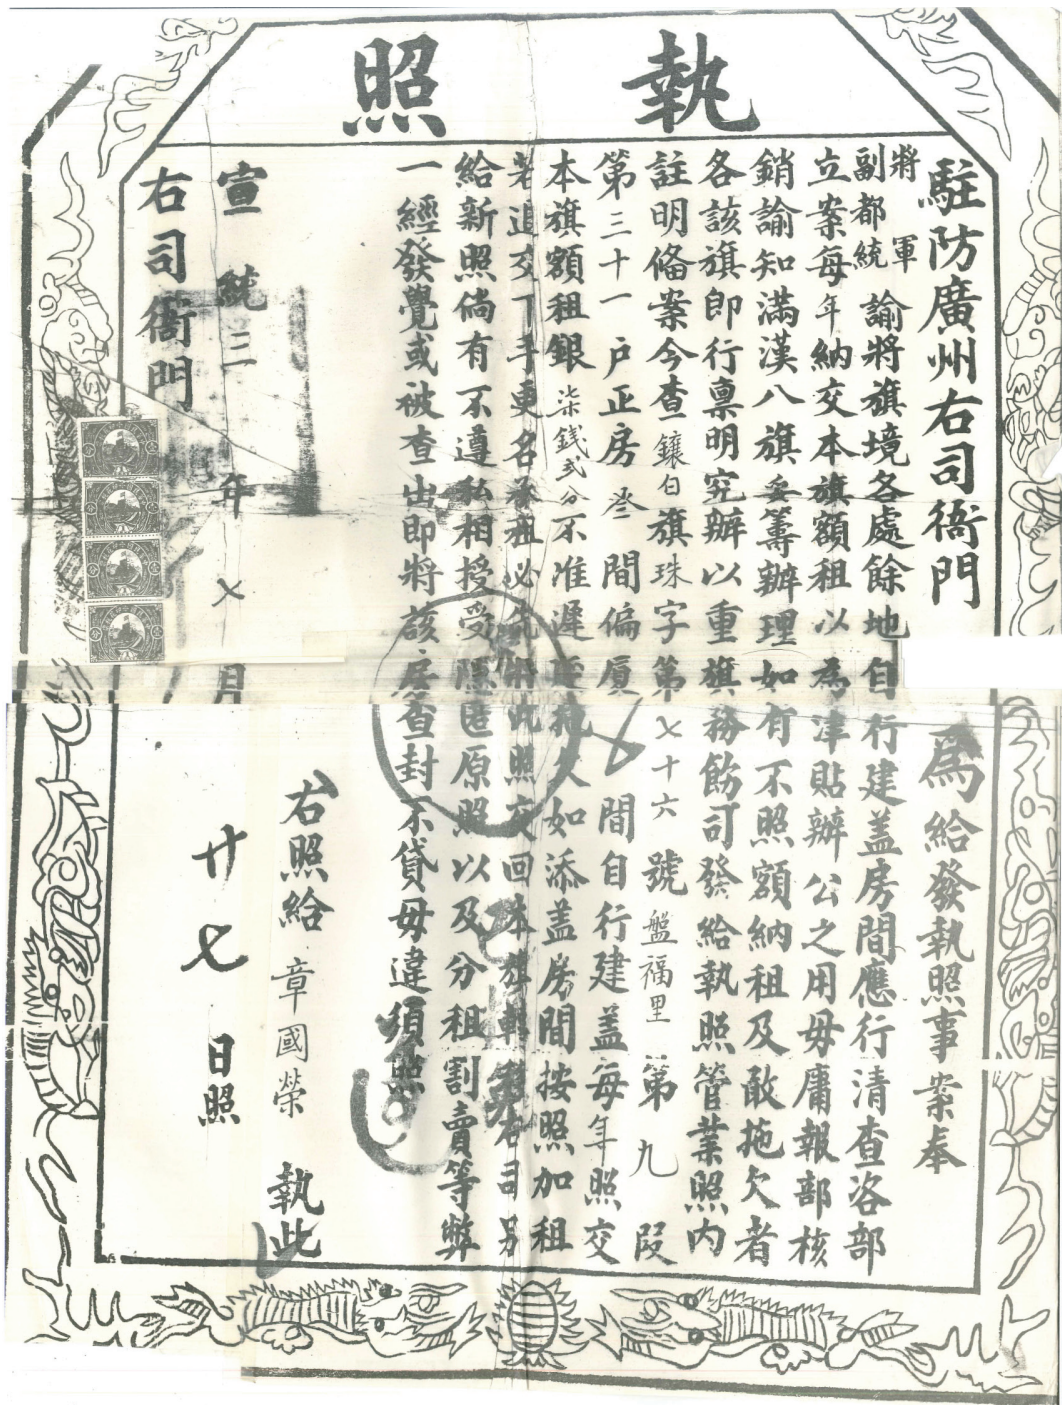 執照
駐防廣州右司衙門 為給發執照事案奉
將軍
副都統 諭將旗境各處餘地自行建盖房間應行清查洺部
立案每年納交本旗額租以為津貼辦公之用毋庸報部核
銷諭知滿漢八旗妥籌辦理如有不照額納租及敢拖欠者
各該旗即行禀明究辦以重旗務飭司發給執照管業照內
註明俻案今查鑲白旗珠字第七十六號盤福里第九段
第三十一户正房叁間偏厦 間自行建盖每年照交
本旗額租銀柒錢弍分不准遲延拖欠如添盖房間按照加租
若退交下手更名承租必先將此照交回本旗轉移右司另
給新照倘有不遵私相授受隱匿原照以及分租割賣等弊
一經發覺或被查出即將該房查封不貸毋違須照
右照給 章國榮 執此
宣統三年七月廿七日照
右司衙門